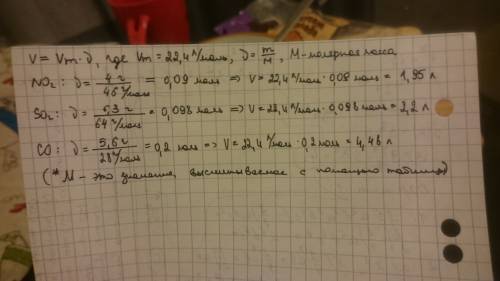 V = Vm · ν, где Vm = 22,4 л/моль, ν = m/M, M - молярная масса
NO₂: ν = 4 г / 46 г/моль = 0,09 моль ⇒ V = 22,4 л/моль · 0,09 моль = 1,95 л
SO₂: ν = 6,3 г / 64 г/моль = 0,098 моль ⇒ V = 22,4 л/моль · 0,098 моль = 2,2 л
CO: ν = 5,6 г / 28 г/моль = 0,2 моль ⇒ V = 22,4 л/моль · 0,2 моль = 4,48 л
(*M - это значение, высчитываемое с помощью таблицы)